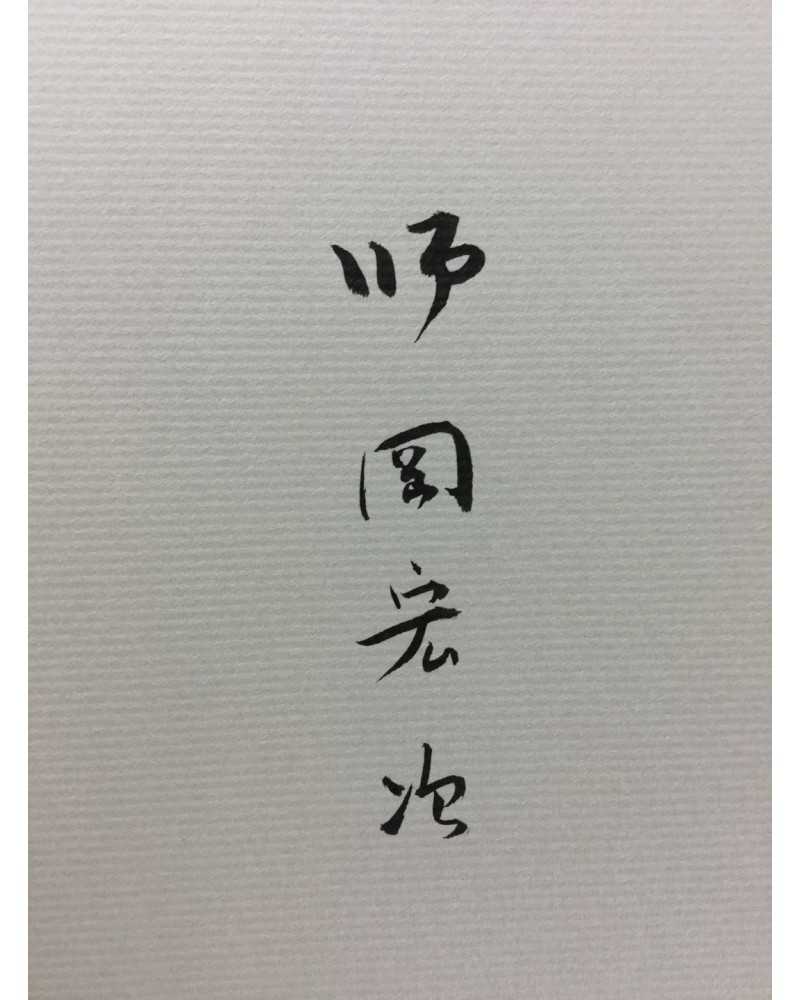 师岡宏次